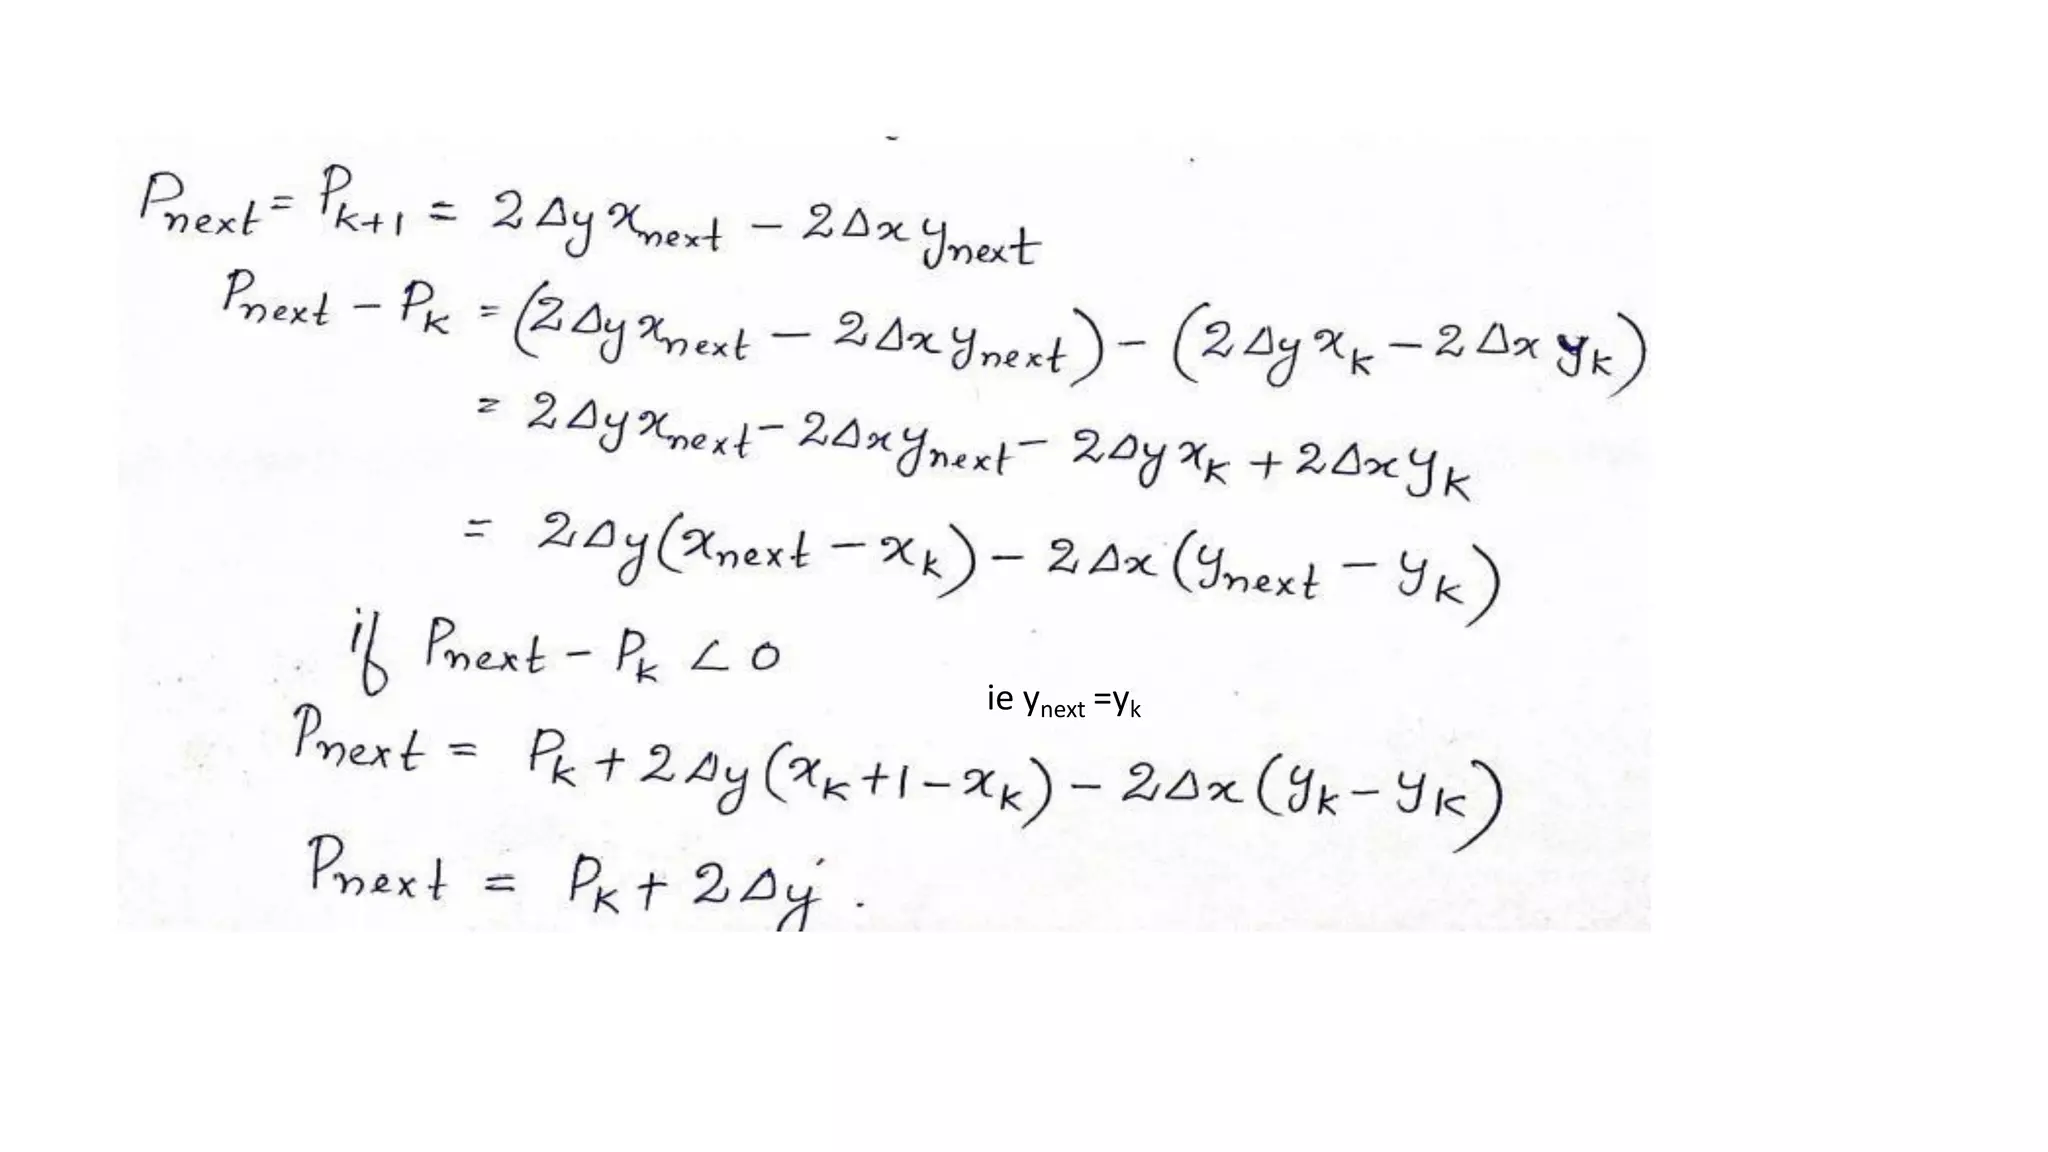 Pnext = Pk+1 = 2Δy xnext − 2Δx ynext
Pnext − Pk = (2Δy xnext − 2Δx ynext) − (2Δy xk − 2Δx yk)
= 2Δy xnext − 2Δx ynext − 2Δy xk + 2Δx yk
= 2Δy(xnext − xk) − 2Δx(ynext − yk)
if Pnext − Pk < 0
ie ynext =yk
Pnext = Pk + 2Δy(xk+1−xk) − 2Δx(yk−yk)
Pnext = Pk + 2Δy.